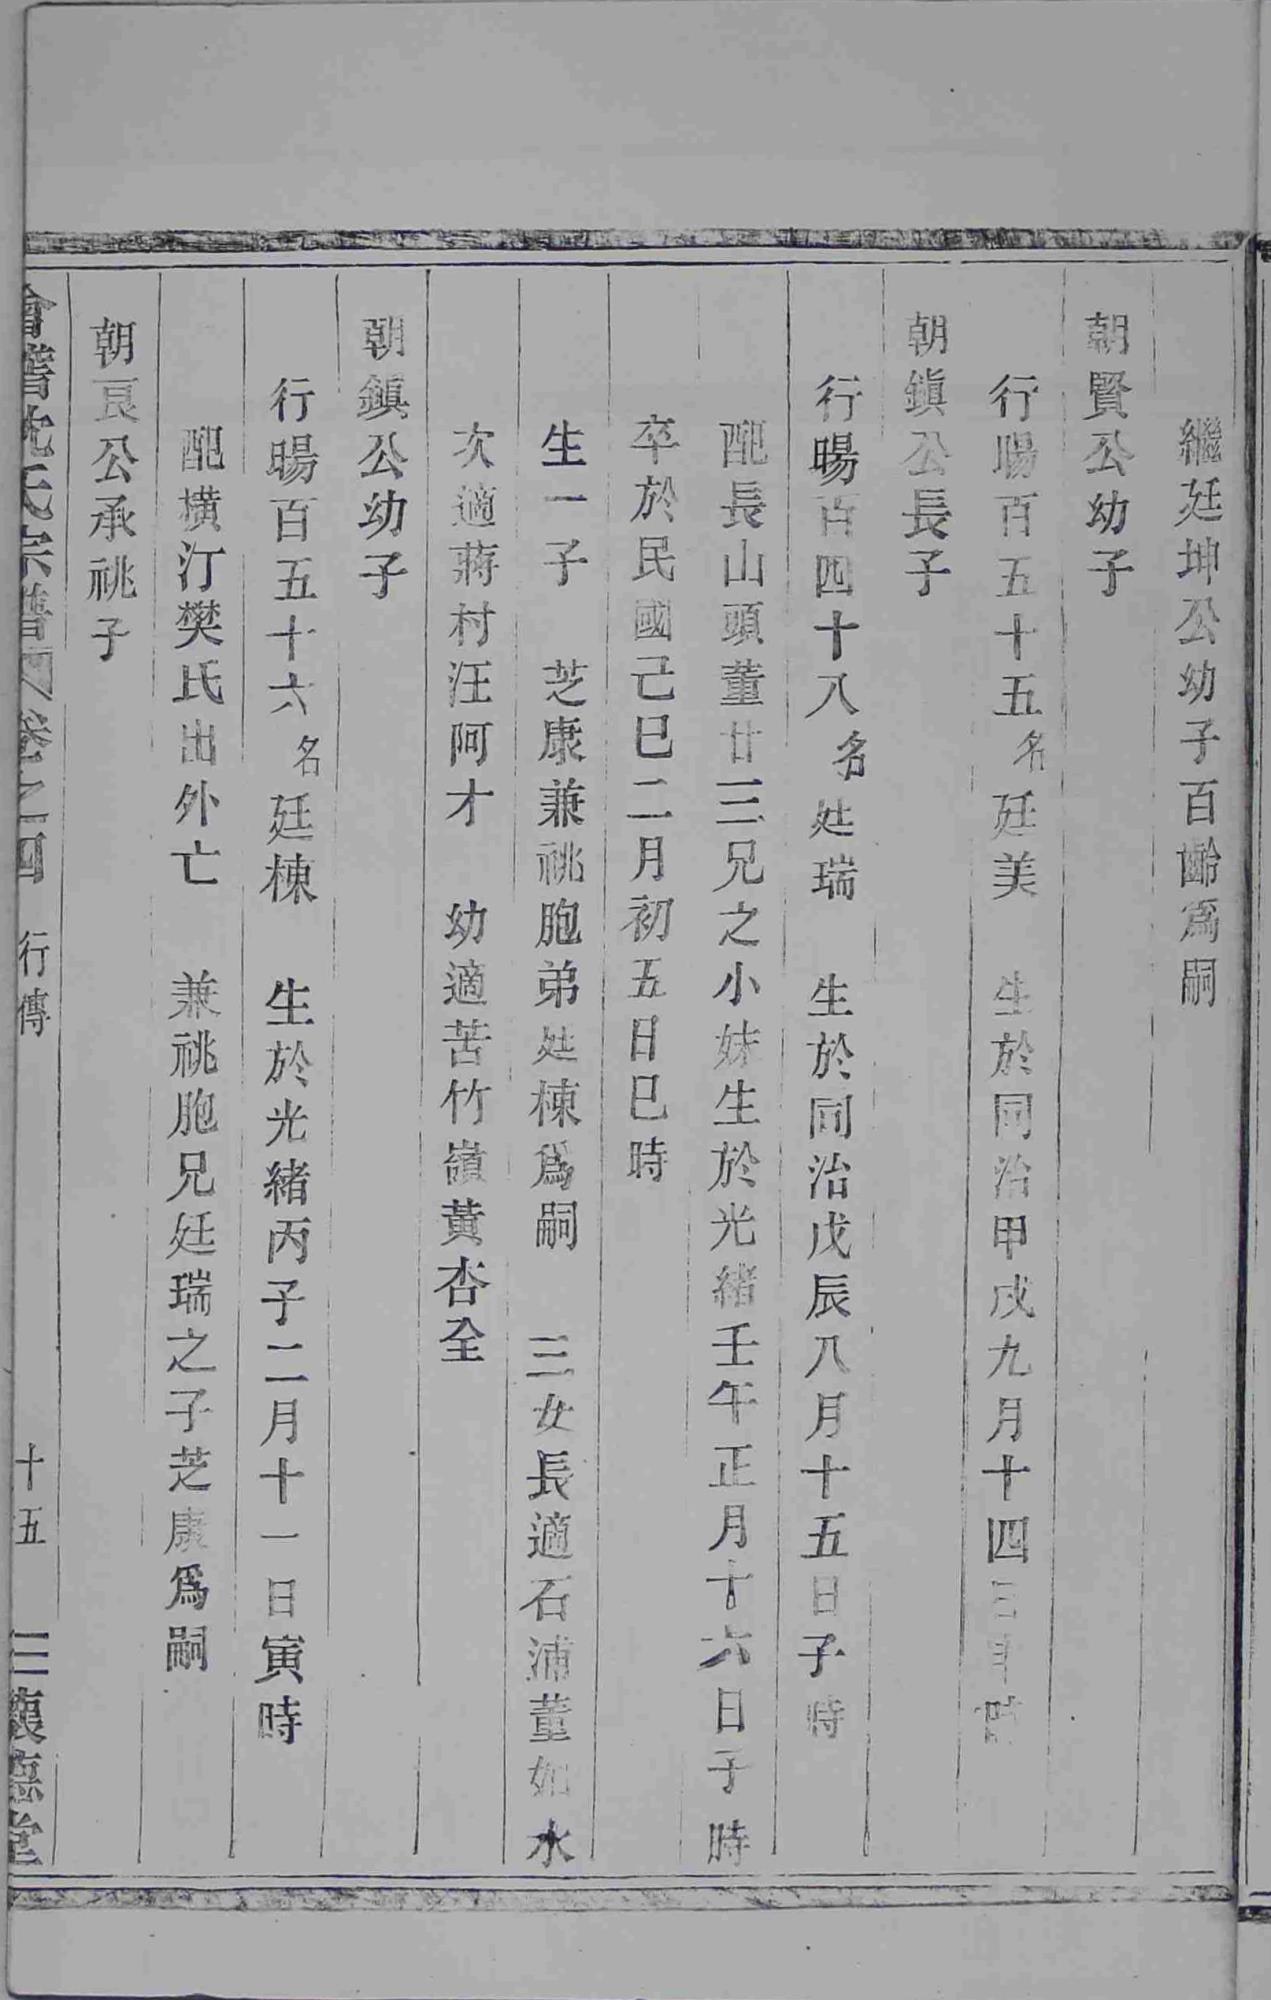 繼廷坤公幼子百齡爲嗣
朝賢公幼子
行暘百五十五名廷美　生於同治甲戌九月十四日時
朝鎭公長子
行暘百四十八名廷瑞　生於同治戊辰八月十五日子時
配長山頭董廿三兄之小妹生於光緒壬午正月十六日子時
卒於民國己巳二月初五日巳時
生一子　芝康兼祧胞弟廷棟爲嗣　三女長適石浦董如水
次適蔣村汪阿才　幼適苦竹嶺黃杏全
朝鎭公幼子
行暘百五十六名廷棟　生於光緒丙子二月十一日寅時
配橫汀樊氏出外亡　兼祧胞兄廷瑞之子芝康爲嗣
朝良公承祧子
會稽沈氏宗譜卷之四　行傳　十五　三懷德堂